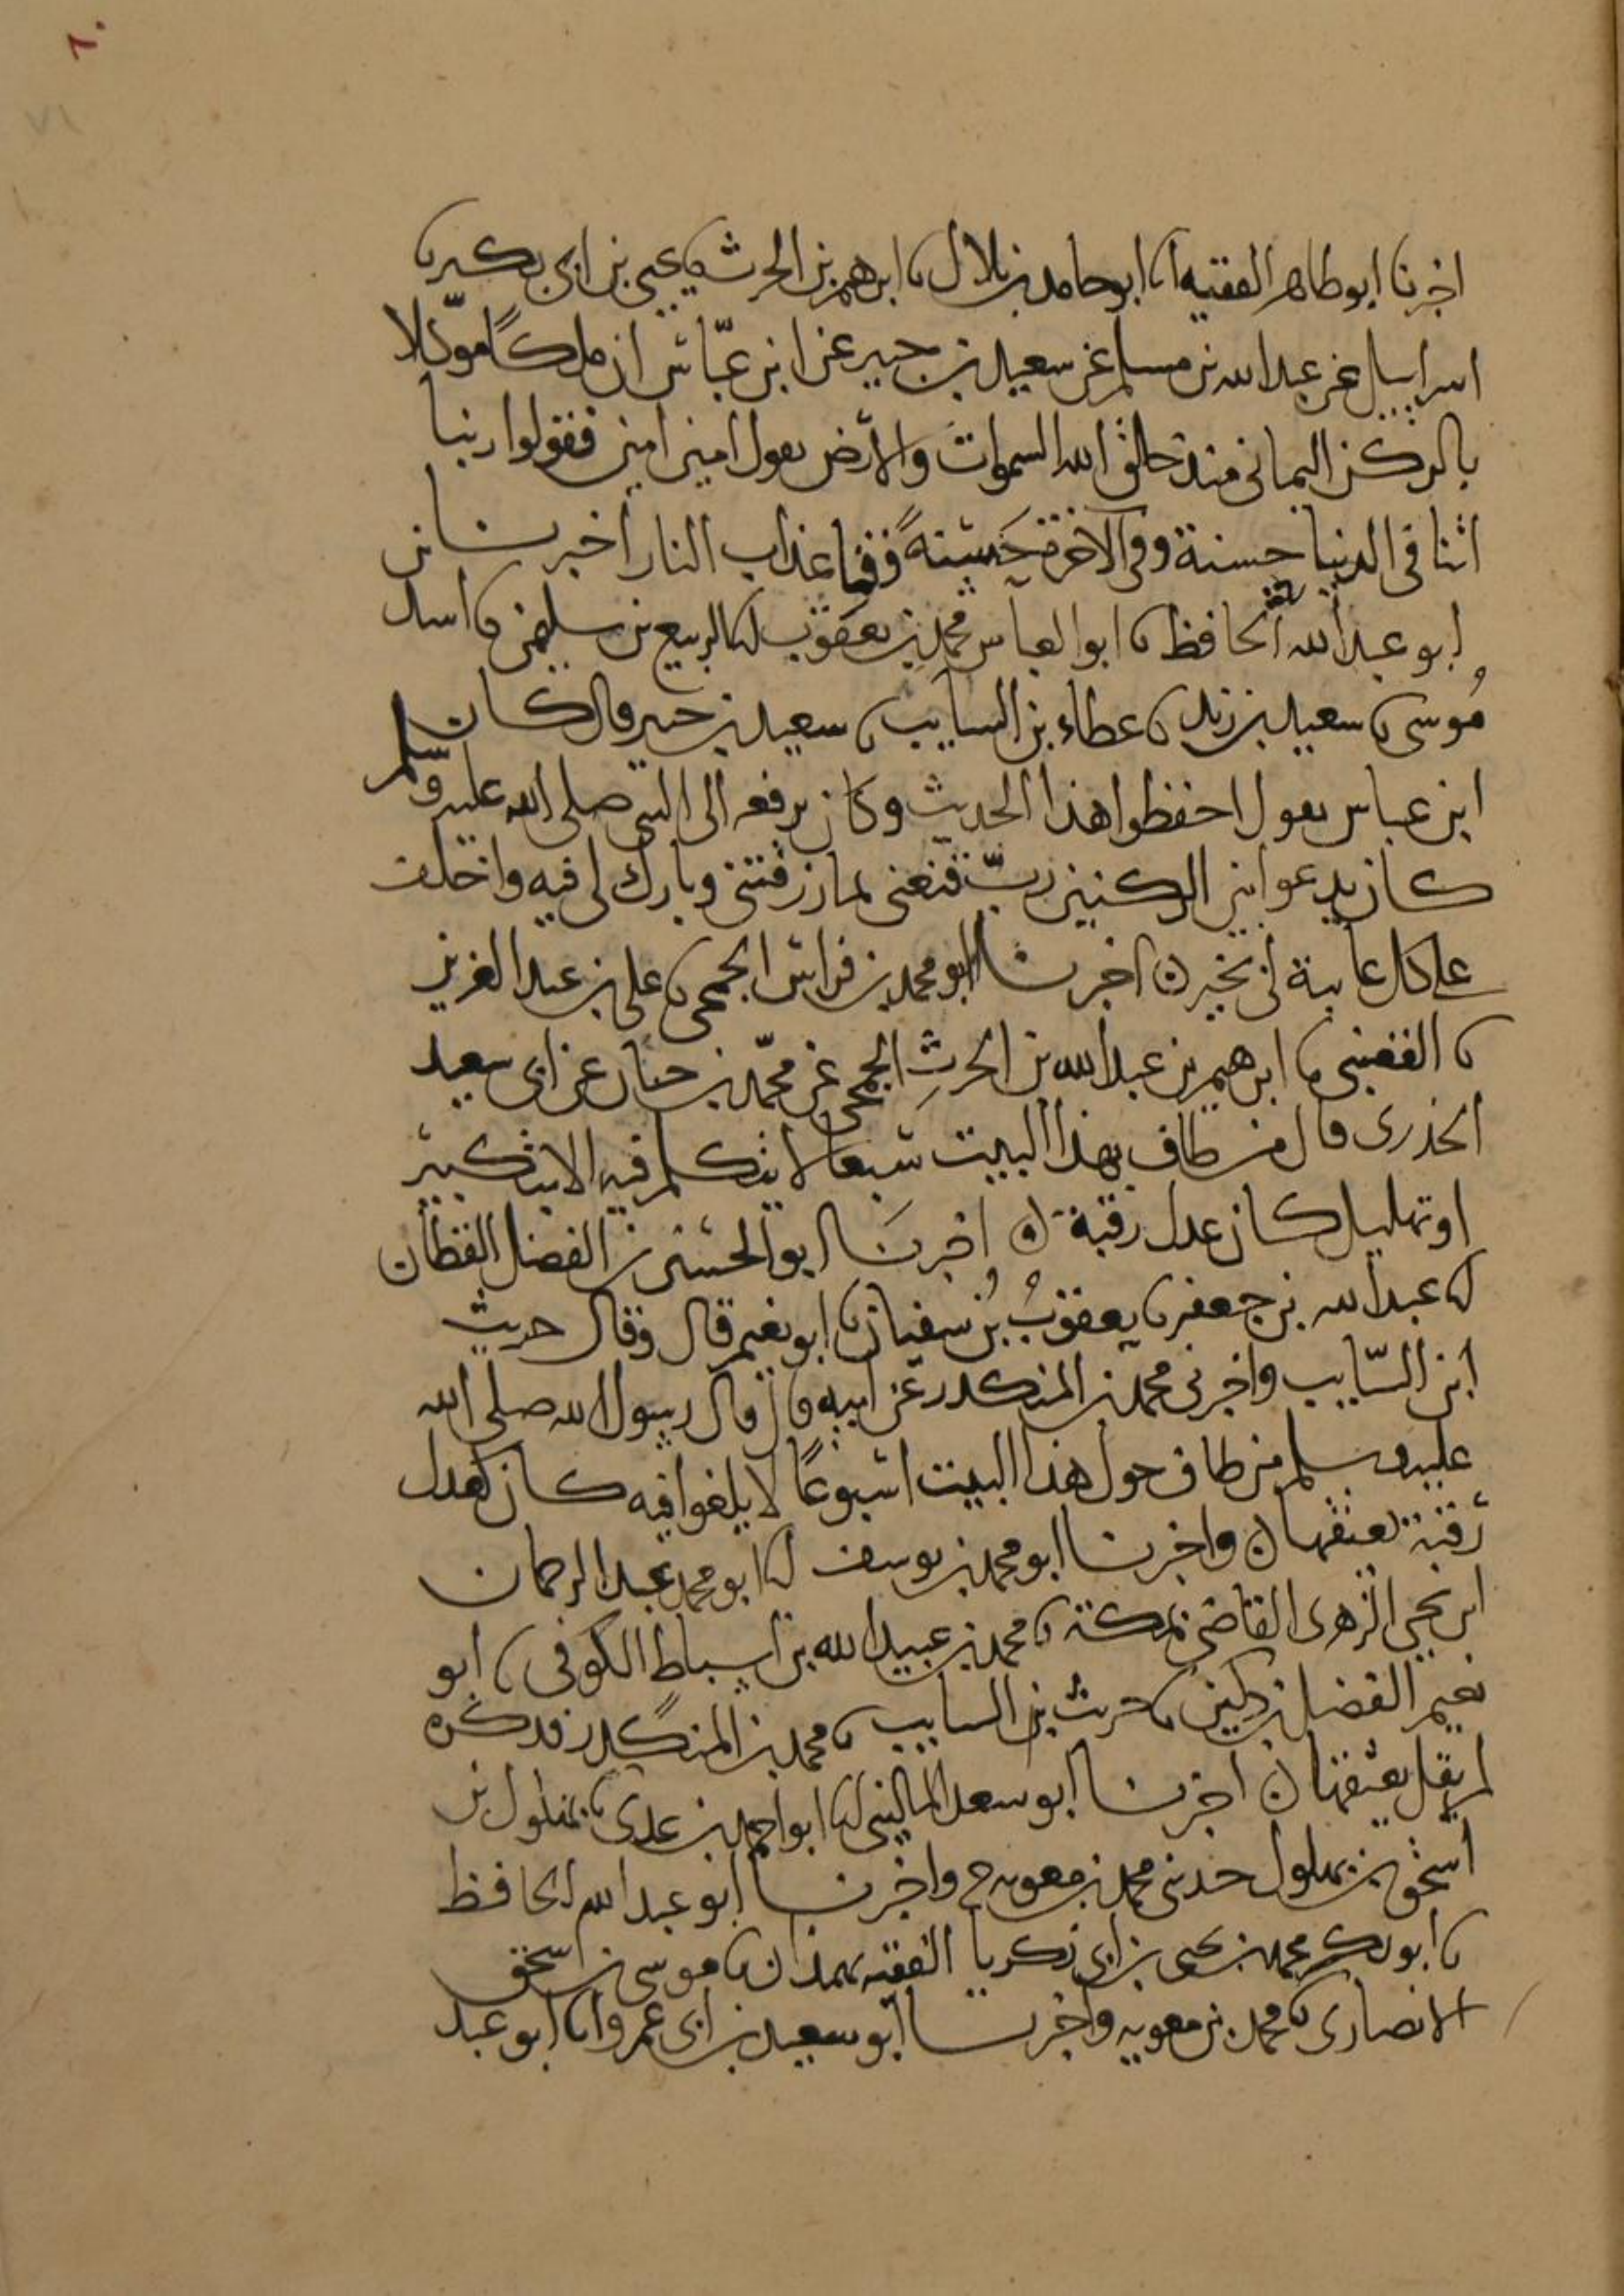 ٦٠
٧١
اخبرنا ابو طاهر الفقيه انا ابو حامد بن بلال نا ابرهيم بن الحرث نا يحيى بن ابى بكير نا
اسراييل عن عبد الله بن مسلم عن سعيد بن جبير عن ابن عباس ان ملكًا موكّلا
بالركن اليمانى منذ خلق الله السموات والارض يقول امين امين فقولوا ربنا
اتنا فى الدنيا حسنة وفى الاخرة حسنةً وقنا عذاب النار اخبرنا
ابو عبد الله الحافظ نا ابو العباس محمد بن يعقوب انا الربيع بن سليمن نا اسد بن
مُوسى نا سعيد بن زيد نا عطاء بن السايب نا سعيد بن جبير قال كان
ابن عباس يقول احفظوا هذا الحديث وكان يرفعه الى النبى صلى الله عليه وسلم
كان يدعو بين الركنين ربّ قنعنى بما رزقتنى وبارك لى فيه واخلف
على كل غايبة لى بخير ن اخبرنا ابو محمد بن فراس الجمحى نا على بن عبد العزيز
نا القعنبى نا ابرهيم بن عبد الله بن الحرثِ الجمحى عن محمّد بن حبان عن ابى سعيد
الخدرى قال من طاف بهذا البيت سبعا لا يتكلم فيه الا بتكبير
او تهليل كان عدل رقبة ن اخبرنا ابو الحسين بن الفضل القطان
انا عبد الله بن جعفر نا يعقوبُ بْن سفيان نا ابو نعيم قال وقال حريث
ابن السّايب واخبرنى محمد بن المنكدر عن ابيه قال قال رسول الله صلى الله
عليه وسلم من طاف حول هذا البيت اسبوعًا لا يلغوا فيه كان كعدل
رقبة يعتقها ن واخبرنا ابو محمد بن يوسف انا ابو محمد عبد الرحمان
ابن يحيى الزهرى القاضى بمكة نا محمد بن عبيد الله بن اسباط الكوفى نا ابو
نعيم الفضل بن دكين نا حريث بن السايب نا محمد بن المنكدر فذكره
لم يقل يعتقها ن اخبرنا ابو سعد المالينى انا ابو احمد بن عدى نا بهلول بن
اسحق بن بهلول حدثنى محمد بن معويه ح واخبرنا ابو عبد الله الحافظ
نا ابو بكر محمد بن يحيى بن ابى زكريا الفقيه بهمذان نا موسى بن اسحق
الانصارى نا محمد بن معويه واخبرنا ابو سعيد بن ابى عمرو انا ابو عبد